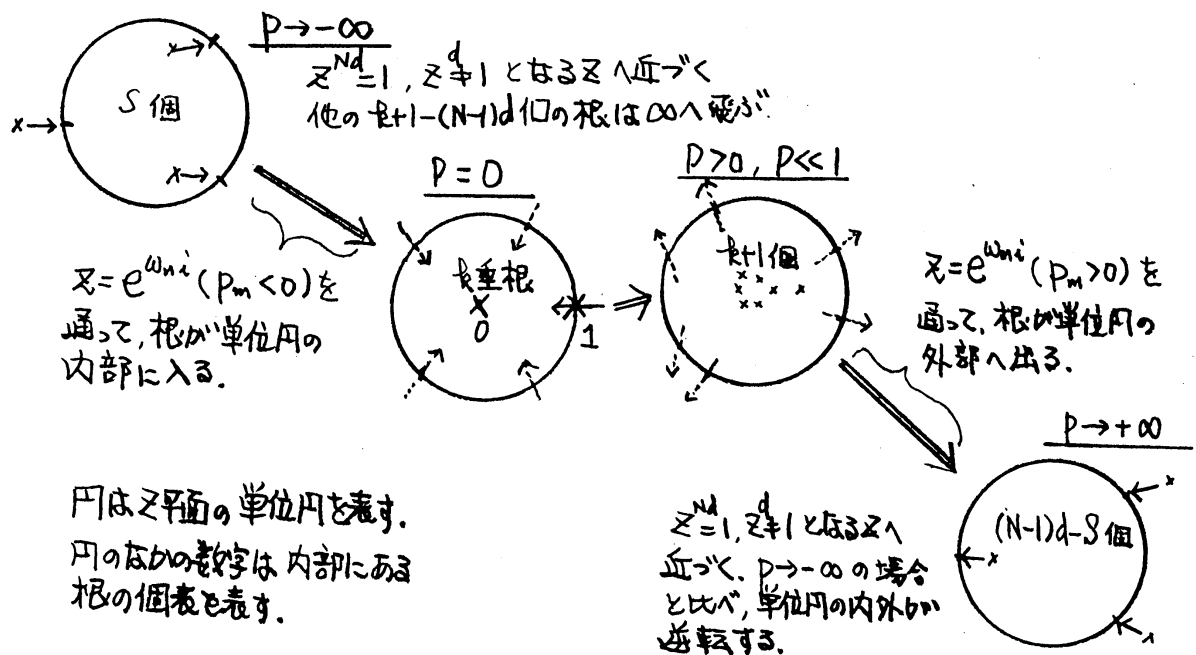 P→-∞
S個
z^{Nd}=1, z^d≠1 となるzへ近づく
他の k+1-(N-1)d 個の根は∞へ飛ぶ
P=0
k重根
0
1
P>0, P≪1
k+1個
z=e^{ω_n i} (P_m<0)を
通って,根が単位円の
内部に入る.
z=e^{ω_n i} (P_m>0)を
通って,根が単位円の
外部へ出る.
P→+∞
(N-1)d-S個
円はz平面の単位円を表す.
円のなかの数字は内部にある
根の個数を表す.
z^{Nd}=1, z^d≠1 となるzへ
近づく. P→-∞の場合
と比べ,単位円の内外が
逆転する.